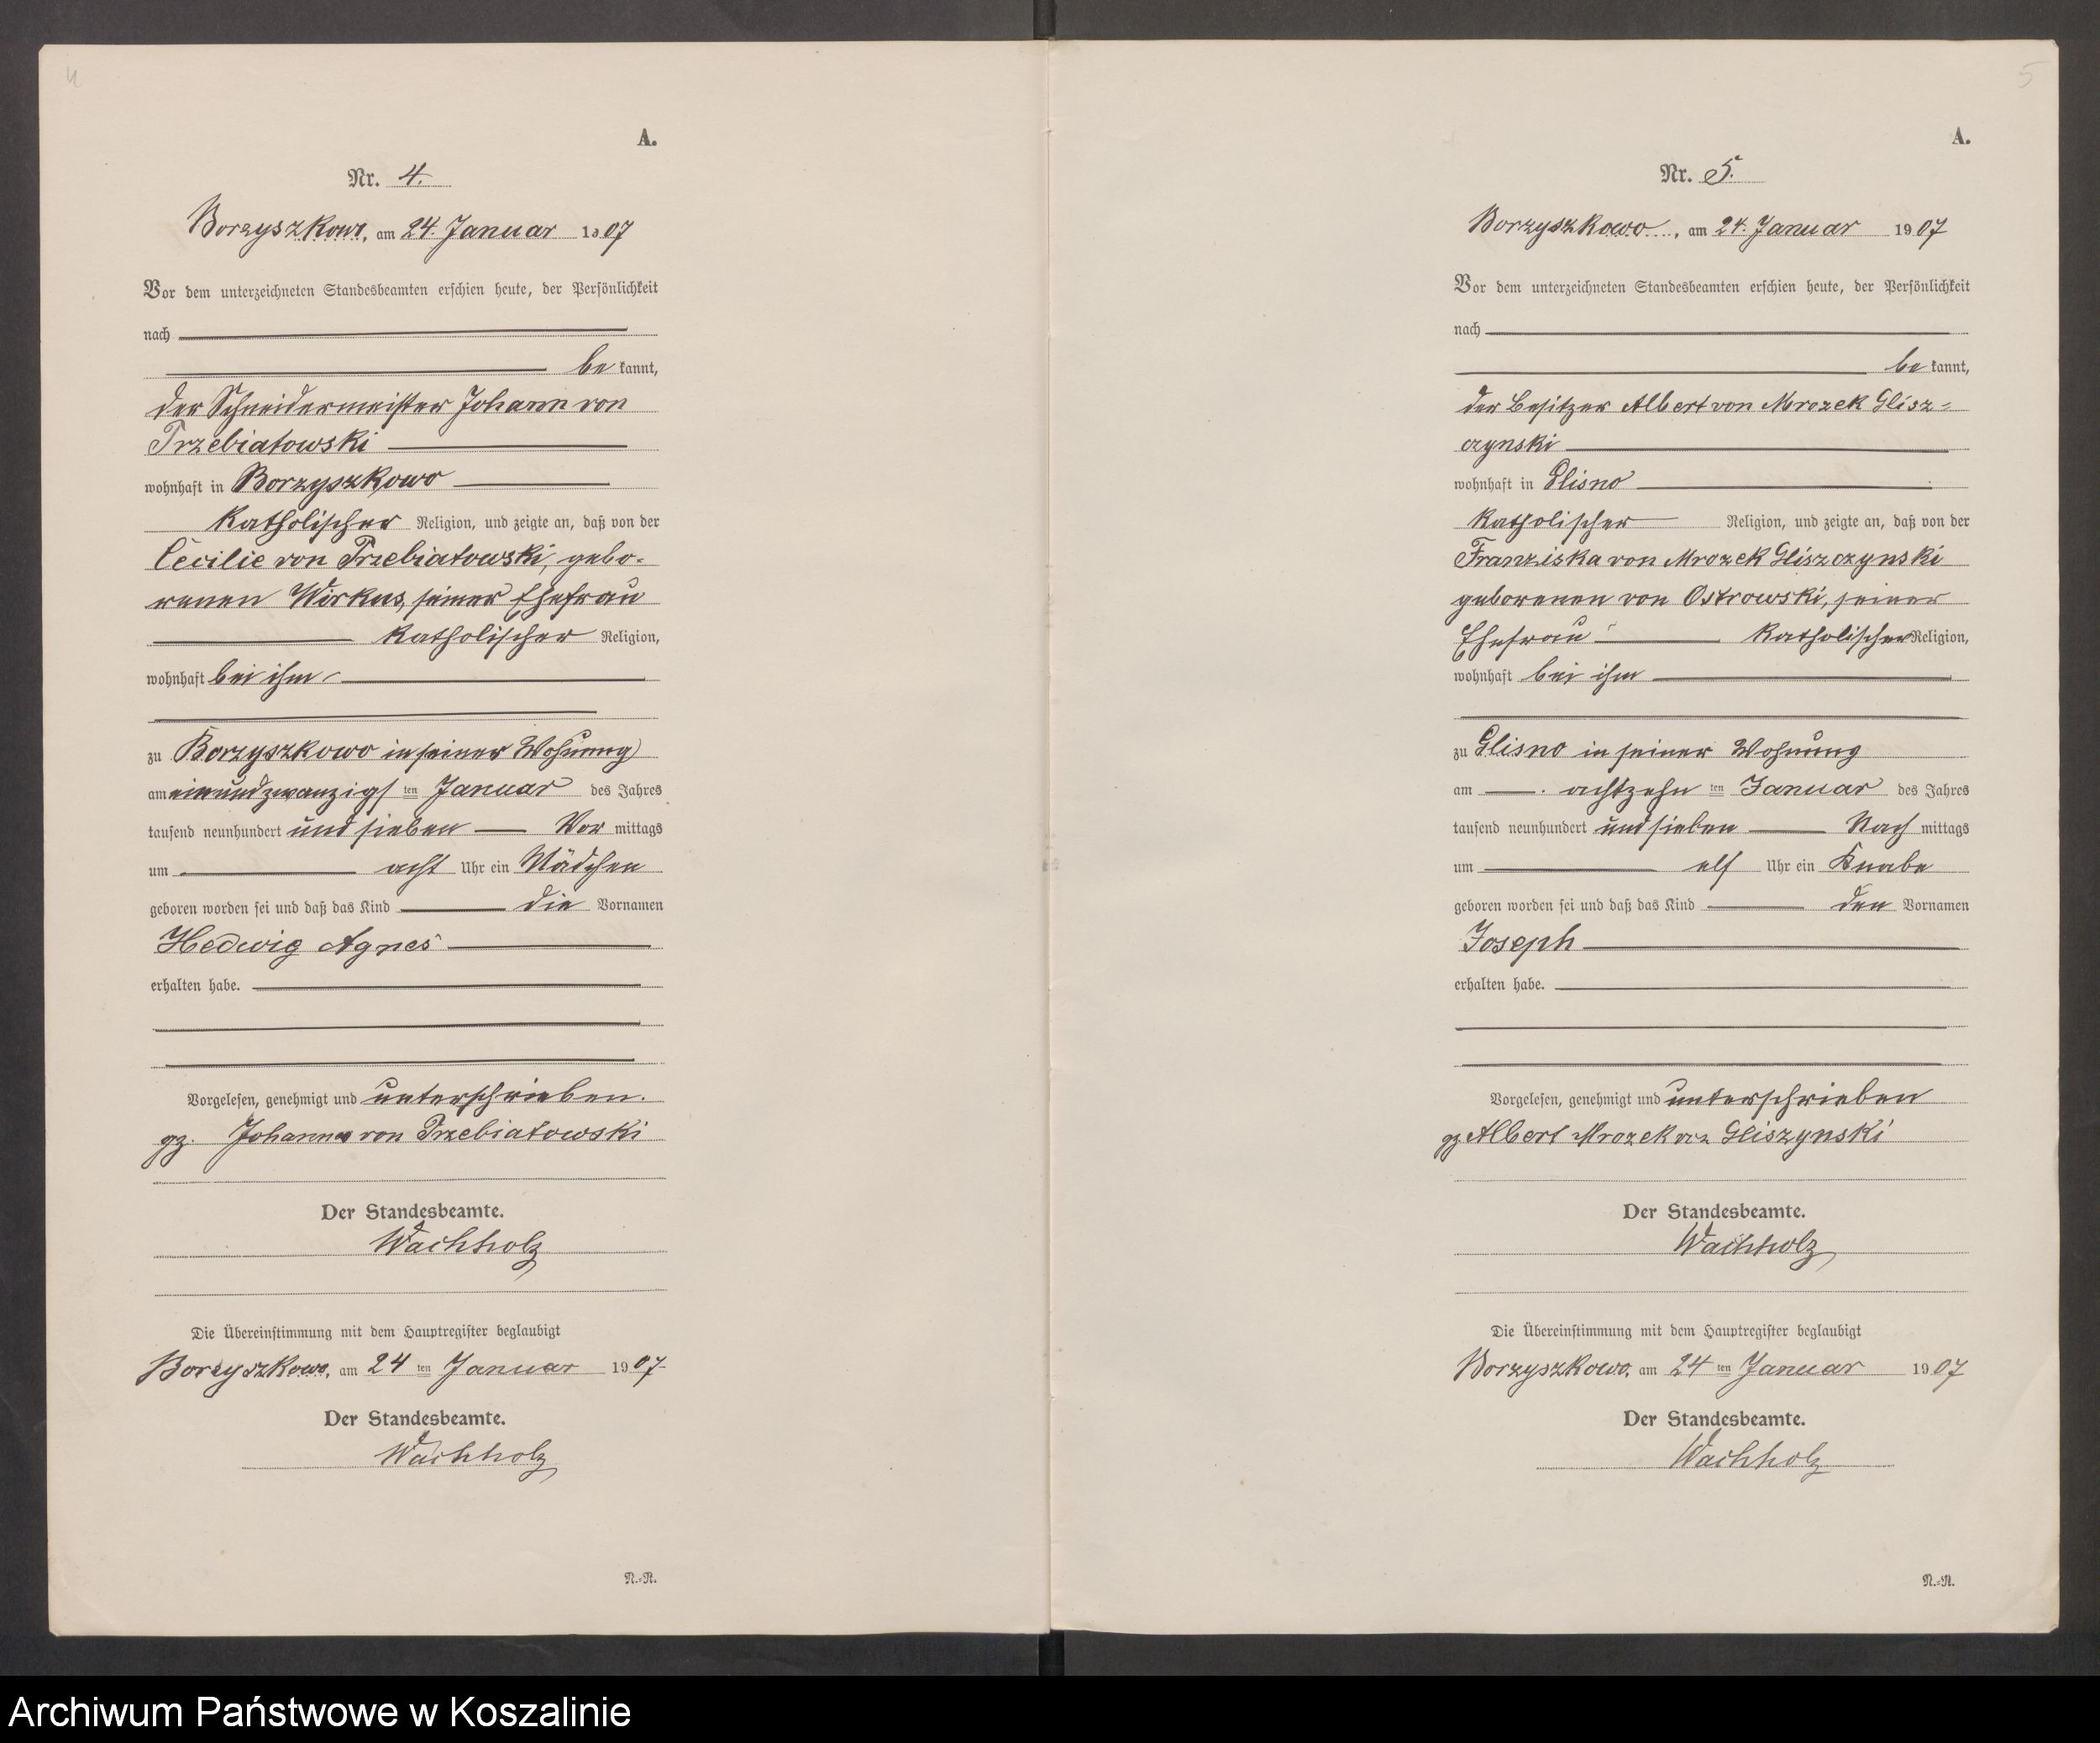 4
A.
Nr. 4.
Borzyszkowo, am 24. Januar 1907
Vor dem unterzeichneten Standesbeamten erschien heute, der Persönlichkeit
nach
be kannt,
der Schneidermeister Johann von
Trzebiatowski
wohnhaft in Borzyszkowo
katholischer Religion, und zeigte an, daß von der
Cecilie von Trzebiatowski, gebo-
renen Wirkus, seiner Ehefrau
katholischer Religion,
wohnhaft bei ihm
zu Borzyszkowo in seiner Wohnung
am einundzwanzigsten Januar des Jahres
tausend neunhundert und sieben Vor mittags
um acht Uhr ein Mädchen
geboren worden sei und daß das Kind die Vornamen
Hedwig Agnes
erhalten habe.
Vorgelesen, genehmigt und unterschrieben.
gz. Johannes von Trzebiatowski
Der Standesbeamte.
Wachholz
Die Übereinstimmung mit dem Hauptregister beglaubigt
Borzyszkowo, am 24 ten Januar 1907
Der Standesbeamte.
Wachholz
N.=R.
5
A.
Nr. 5.
Borzyszkowo, am 24. Januar 1907
Vor dem unterzeichneten Standesbeamten erschien heute, der Persönlichkeit
nach
be kannt,
der Besitzer Albert von Mrozek Glisz-
czynski
wohnhaft in Glisno
katholischer Religion, und zeigte an, daß von der
Franziska von Mrozek Gliszczynski
geborenen von Ostrowski, seiner
Ehefrau katholischer Religion,
wohnhaft bei ihm
zu Glisno in seiner Wohnung
am achtzehn ten Januar des Jahres
tausend neunhundert und sieben Nach mittags
um elf Uhr ein Knabe
geboren worden sei und daß das Kind den Vornamen
Joseph
erhalten habe.
Vorgelesen, genehmigt und unterschrieben
gz. Albert Mrozek von Gliszynski
Der Standesbeamte.
Wachholz
Die Übereinstimmung mit dem Hauptregister beglaubigt
Borzyszkowo, am 24 ten Januar 1907
Der Standesbeamte.
Wachholz
N.=R.
Archiwum Państwowe w Koszalinie